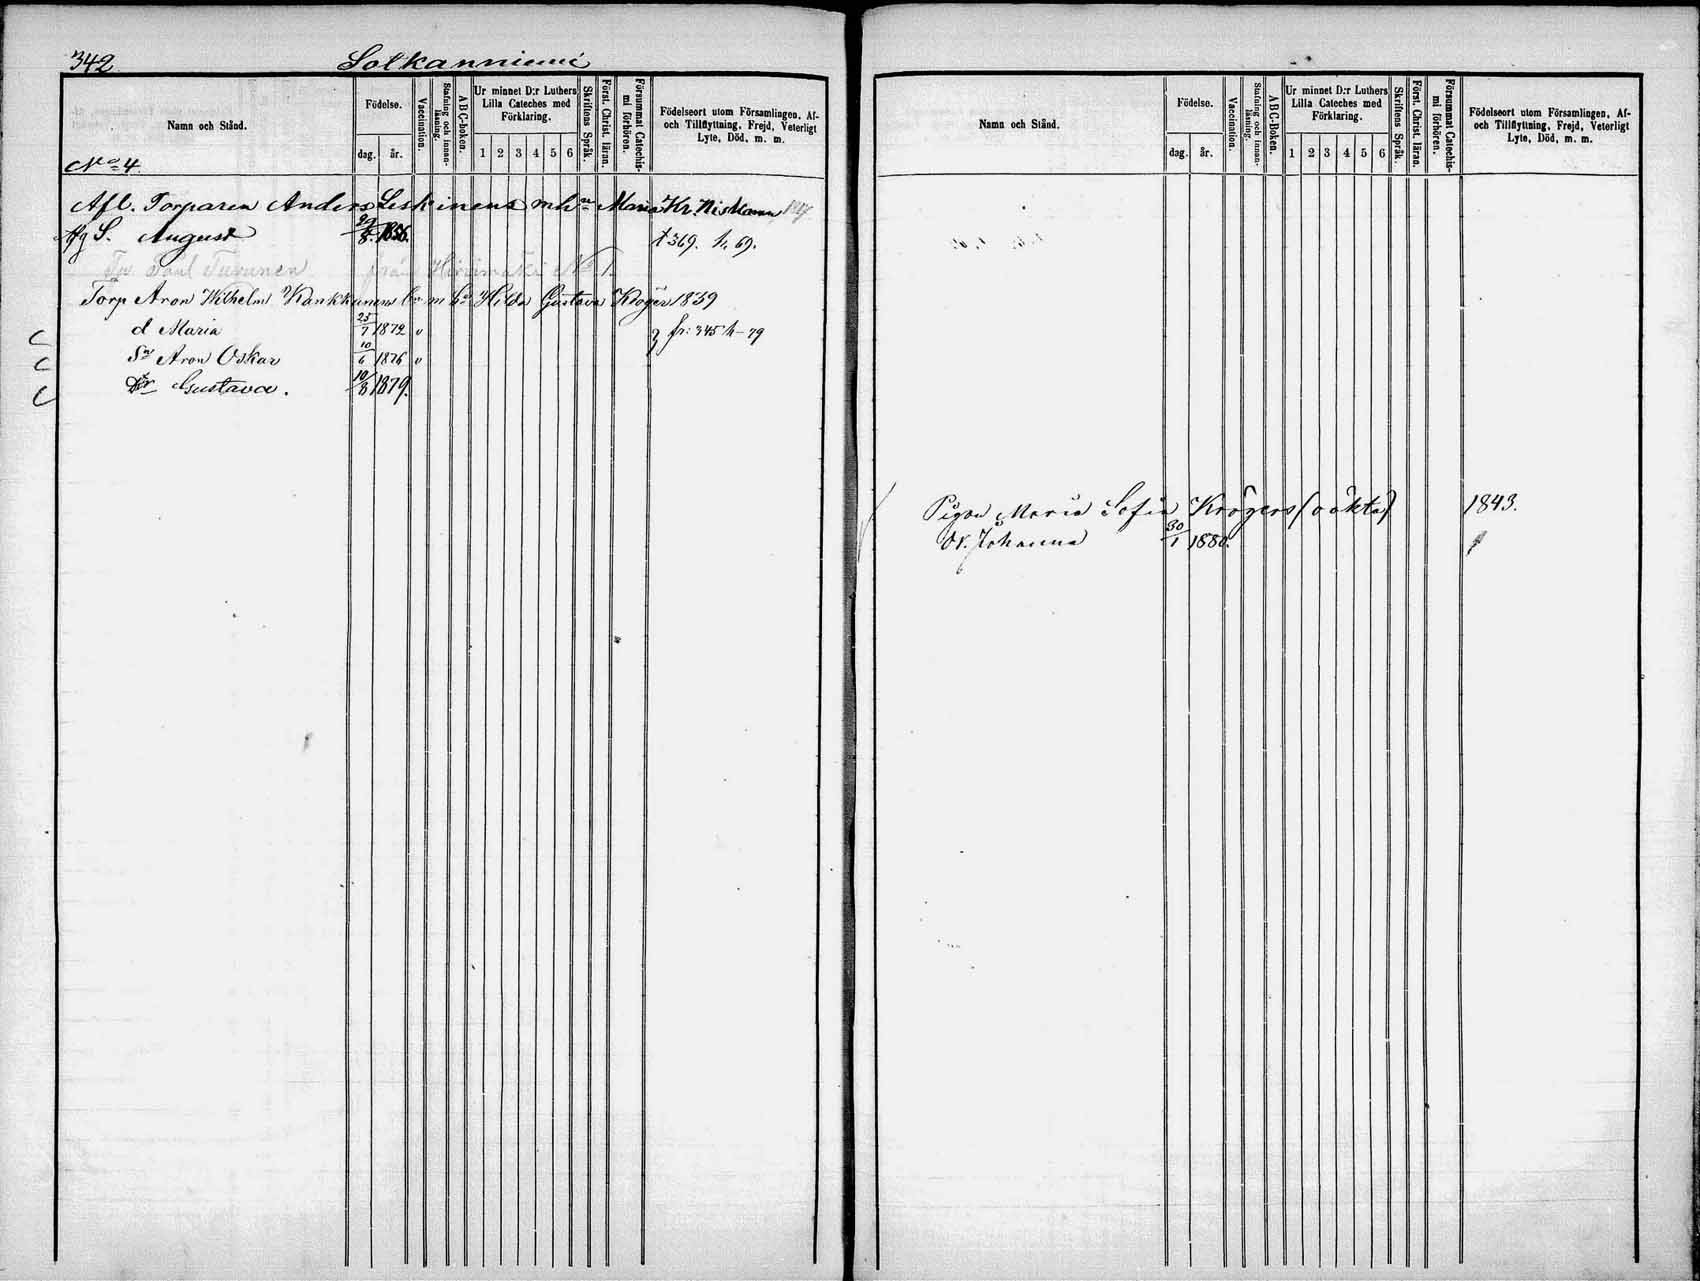 342 Sotkanniemi
Namn och Stånd.
Födelse.
dag. år.
Vaccination.
Stafning och innanläsning.
A B C-boken.
Ur minnet D:r Luthers Lilla Cateches med Förklaring.
1 2 3 4 5 6
Skriftens Språk.
Först. Christ. läran.
Försummat Catechismi förhören.
Födelseort utom Församlingen, Af- och Tillflyttning, Frejd, Veterligt Lyte, Död, m. m.
No 4
Afl. Torparen Anders Leskinens m hu Maria Kr. Niskanen
S. August 8. 1856. t 369. h. 69.
To Paul Turunen från Hirvimäki No 1
Torp Aron Wilhelm Kankkunens m hu Hilda Gustava Kröger 1839
d Maria 25/7 1872 v fr: 345 h-79
Sn Aron Oskar 10/6 1876 v
Dr Gustava. 10/8 1879.
Namn och Stånd.
Födelse.
dag. år.
Vaccination.
Stafning och innanläsning.
A B C-Boken.
Ur minnet D:r Luthers Lilla Cateches med Förklaring.
1 2 3 4 5 6
Skriftens Språk.
Först. Christ. läran.
Försummat Catechismi förhören.
Födelseort utom Församlingen, Af- och Tillflyttning, Frejd, Veterligt Lyte, Död, m. m.
Pigan Maria Sofia Krögers (oäkta) 1843.
Johanna 30/1 1880.